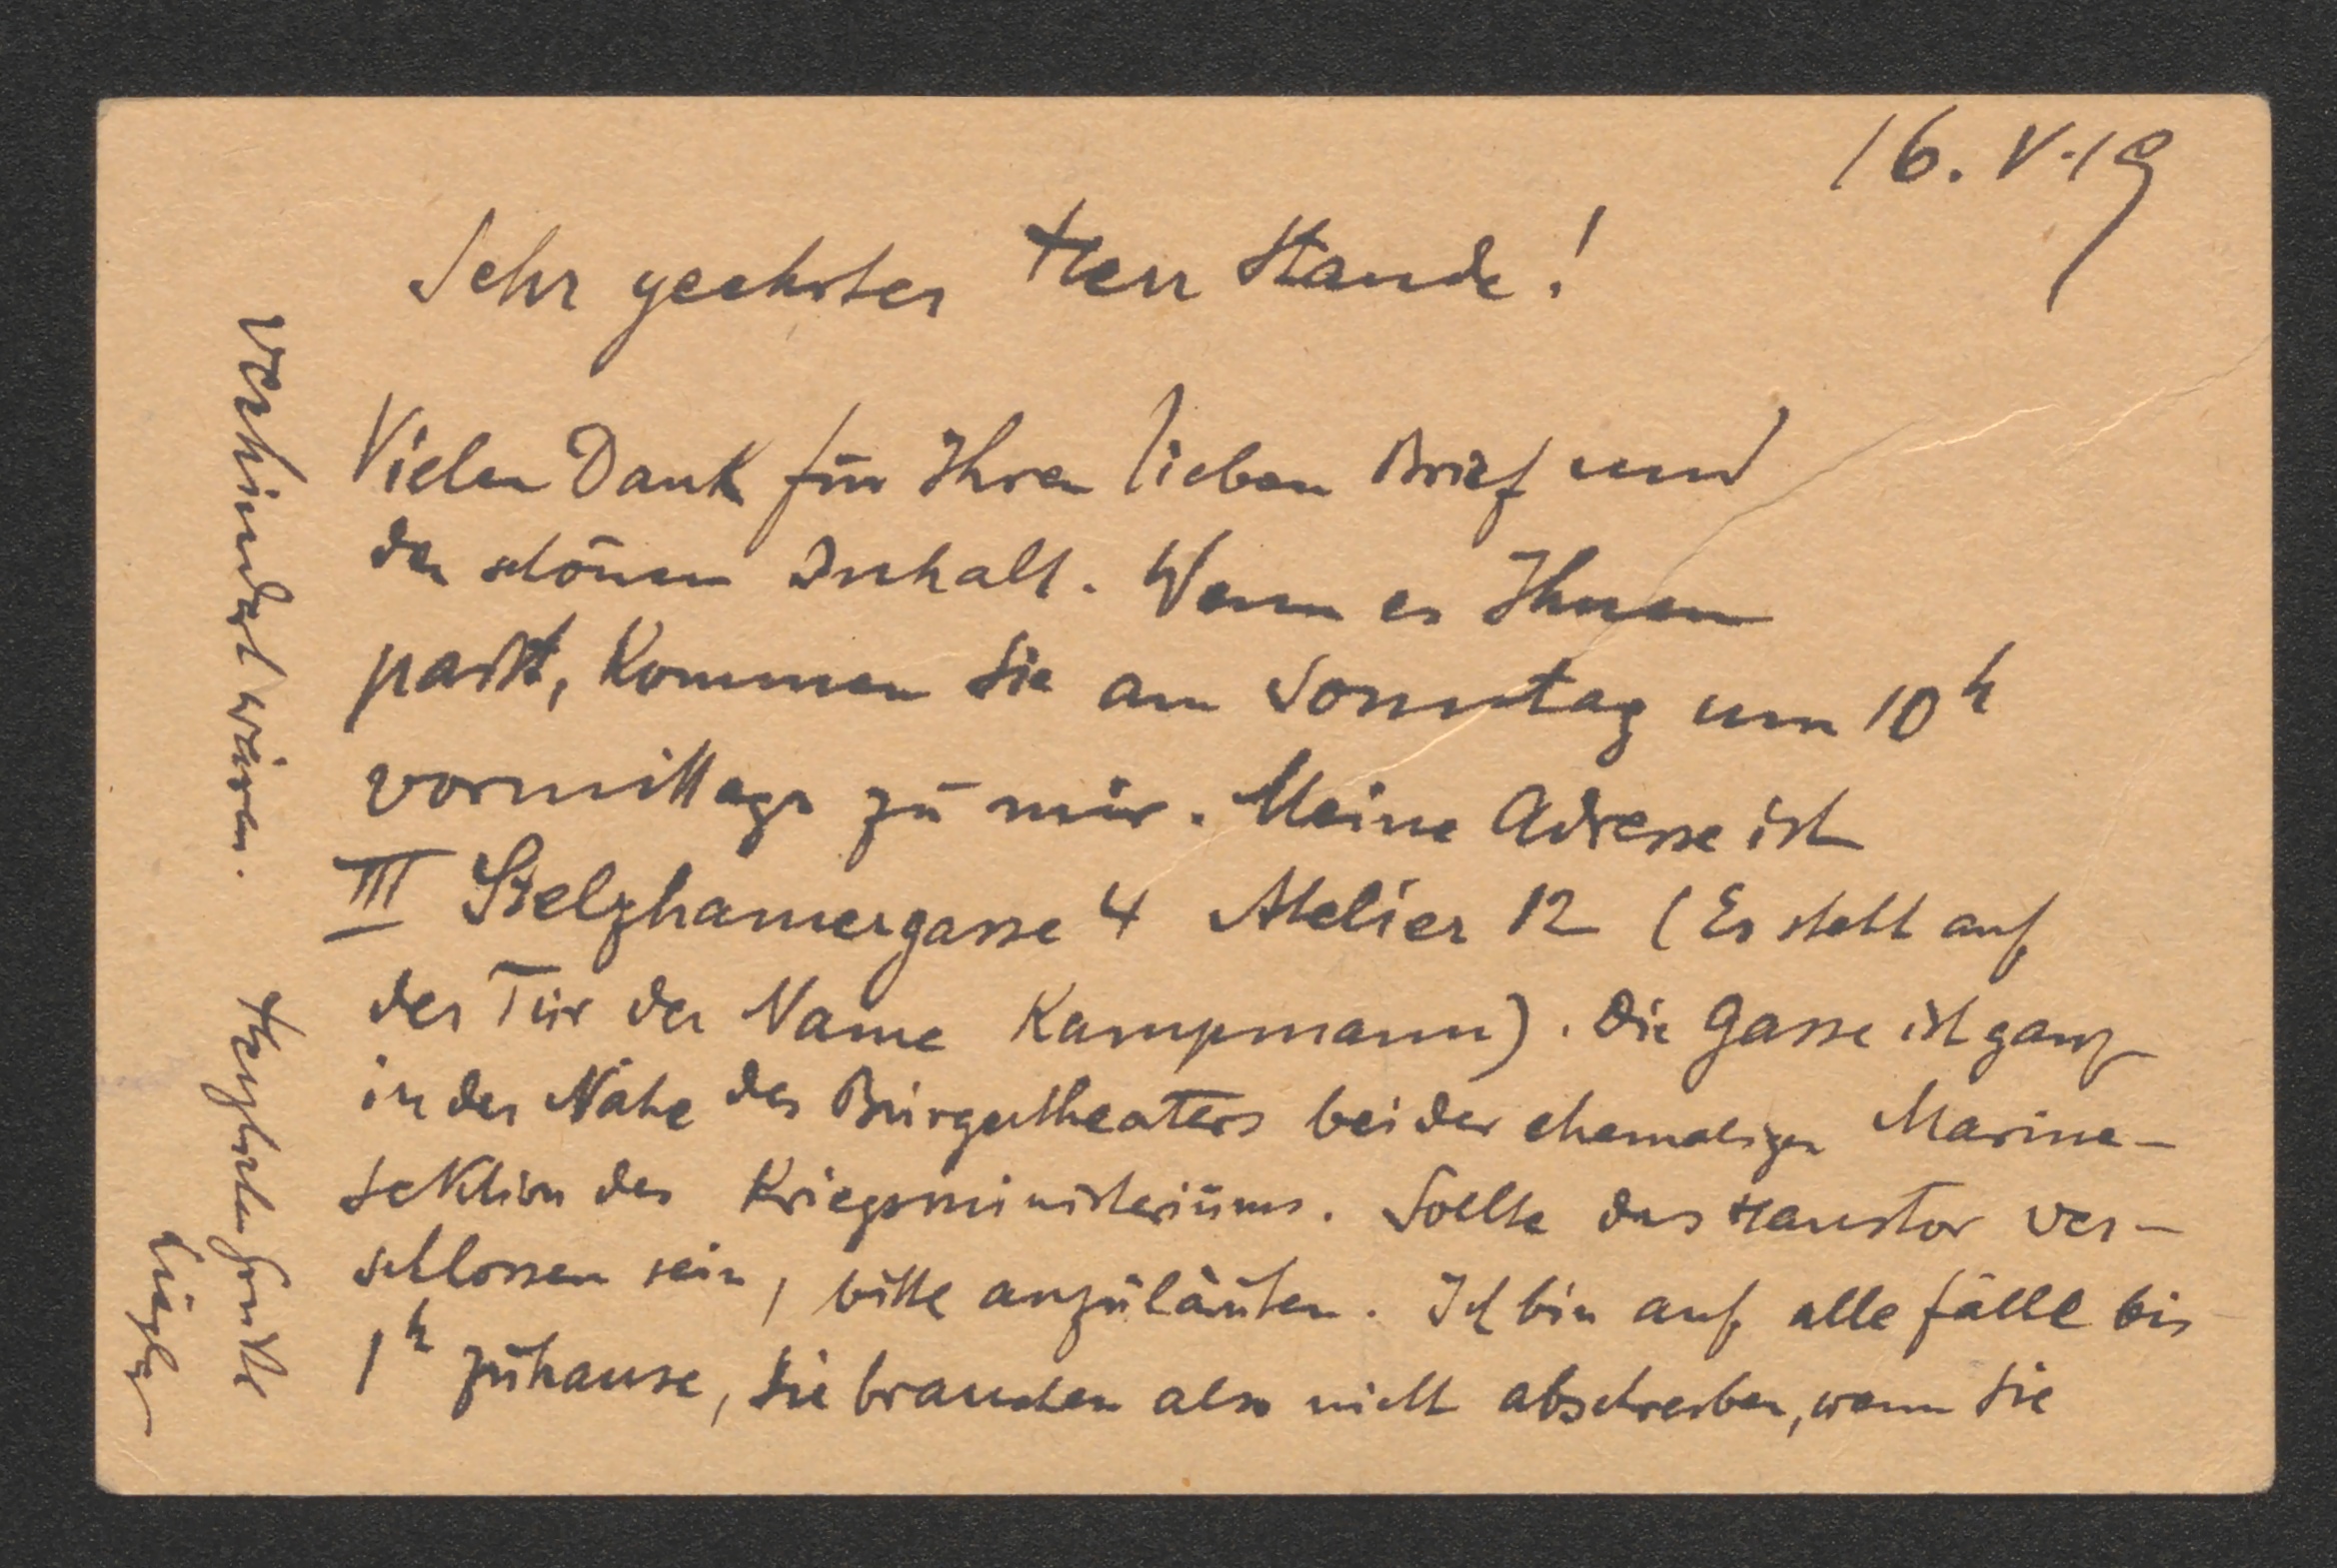 16. V. 19
Sehr geehrter Herr Stande!
Vielen Dank für Ihren lieben Brief und
den schönen Inhalt. Wenn es Ihnen
passt, kommen Sie am Sonntag um 10h
vormittags zu mir. Meine Adresse ist
III Stelzhamergasse 4 Atelier 12 (Es steht auf
der Tür der Name Kampmann). Die Gasse ist ganz
in der Nähe des Bürgertheaters bei der ehemaligen Marine-
sektion des Kriegsministeriums. Sollte das Haustor ver-
schlossen sein, bitte anzuläuten. Ich bin auf alle Fälle bis
1h zuhause, Sie brauchen also nicht abschreiben, wenn Sie
verhindert wären.
Herzliche Grüße